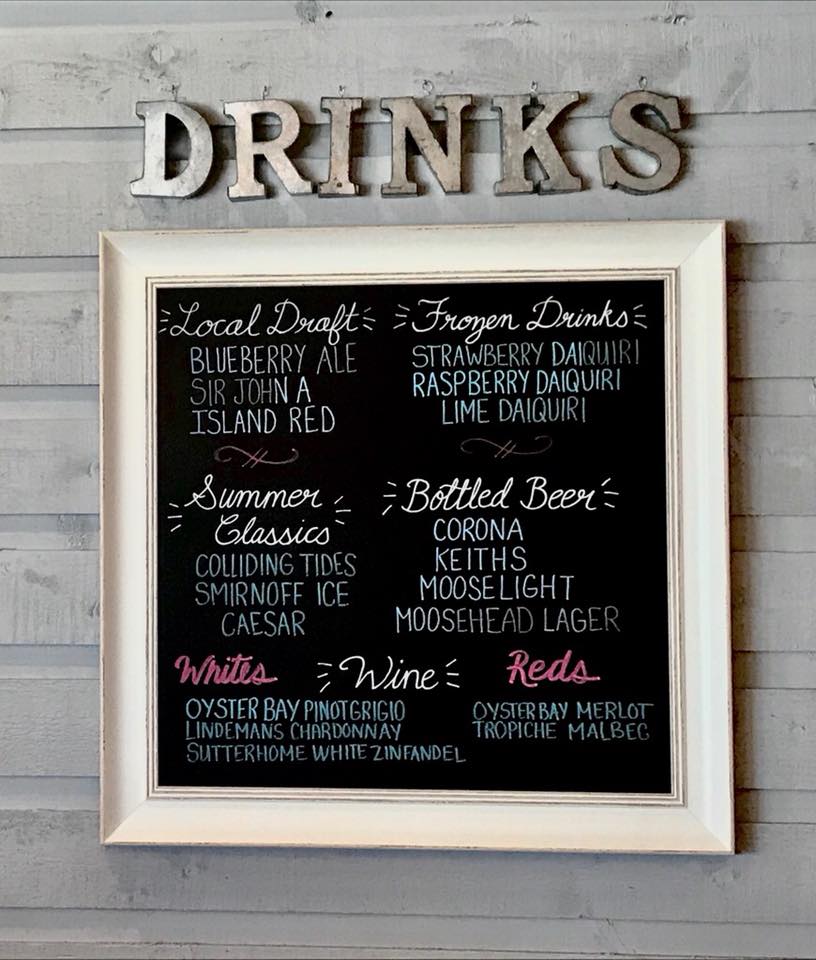 DRINKS
Local Draft
BLUEBERRY ALE
SIR JOHN A
ISLAND RED
Frozen Drinks
STRAWBERRY DAIQUIRI
RASPBERRY DAIQUIRI
LIME DAIQUIRI
Summer
Classics
COLLIDING TIDES
SMIRNOFF ICE
CAESAR
Bottled Beer
CORONA
KEITHS
MOOSELIGHT
MOOSEHEAD LAGER
Wine
Whites
OYSTER BAY PINOT GRIGIO
LINDEMANS CHARDONNAY
SUTTERHOME WHITE ZINFANDEL
Reds
OYSTER BAY MERLOT
TROPICHE MALBEC